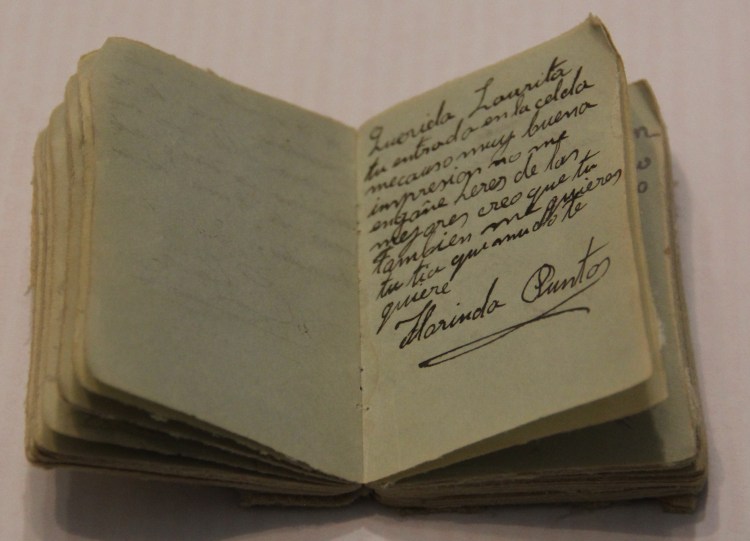 Querida Laurita
tu entrada en la celda
me causo muy buena
impresion no me
engañe heres de las
mejores creo que tu
tambien me quieres
tu tia que mucho te
quiere
Florinda Puntos